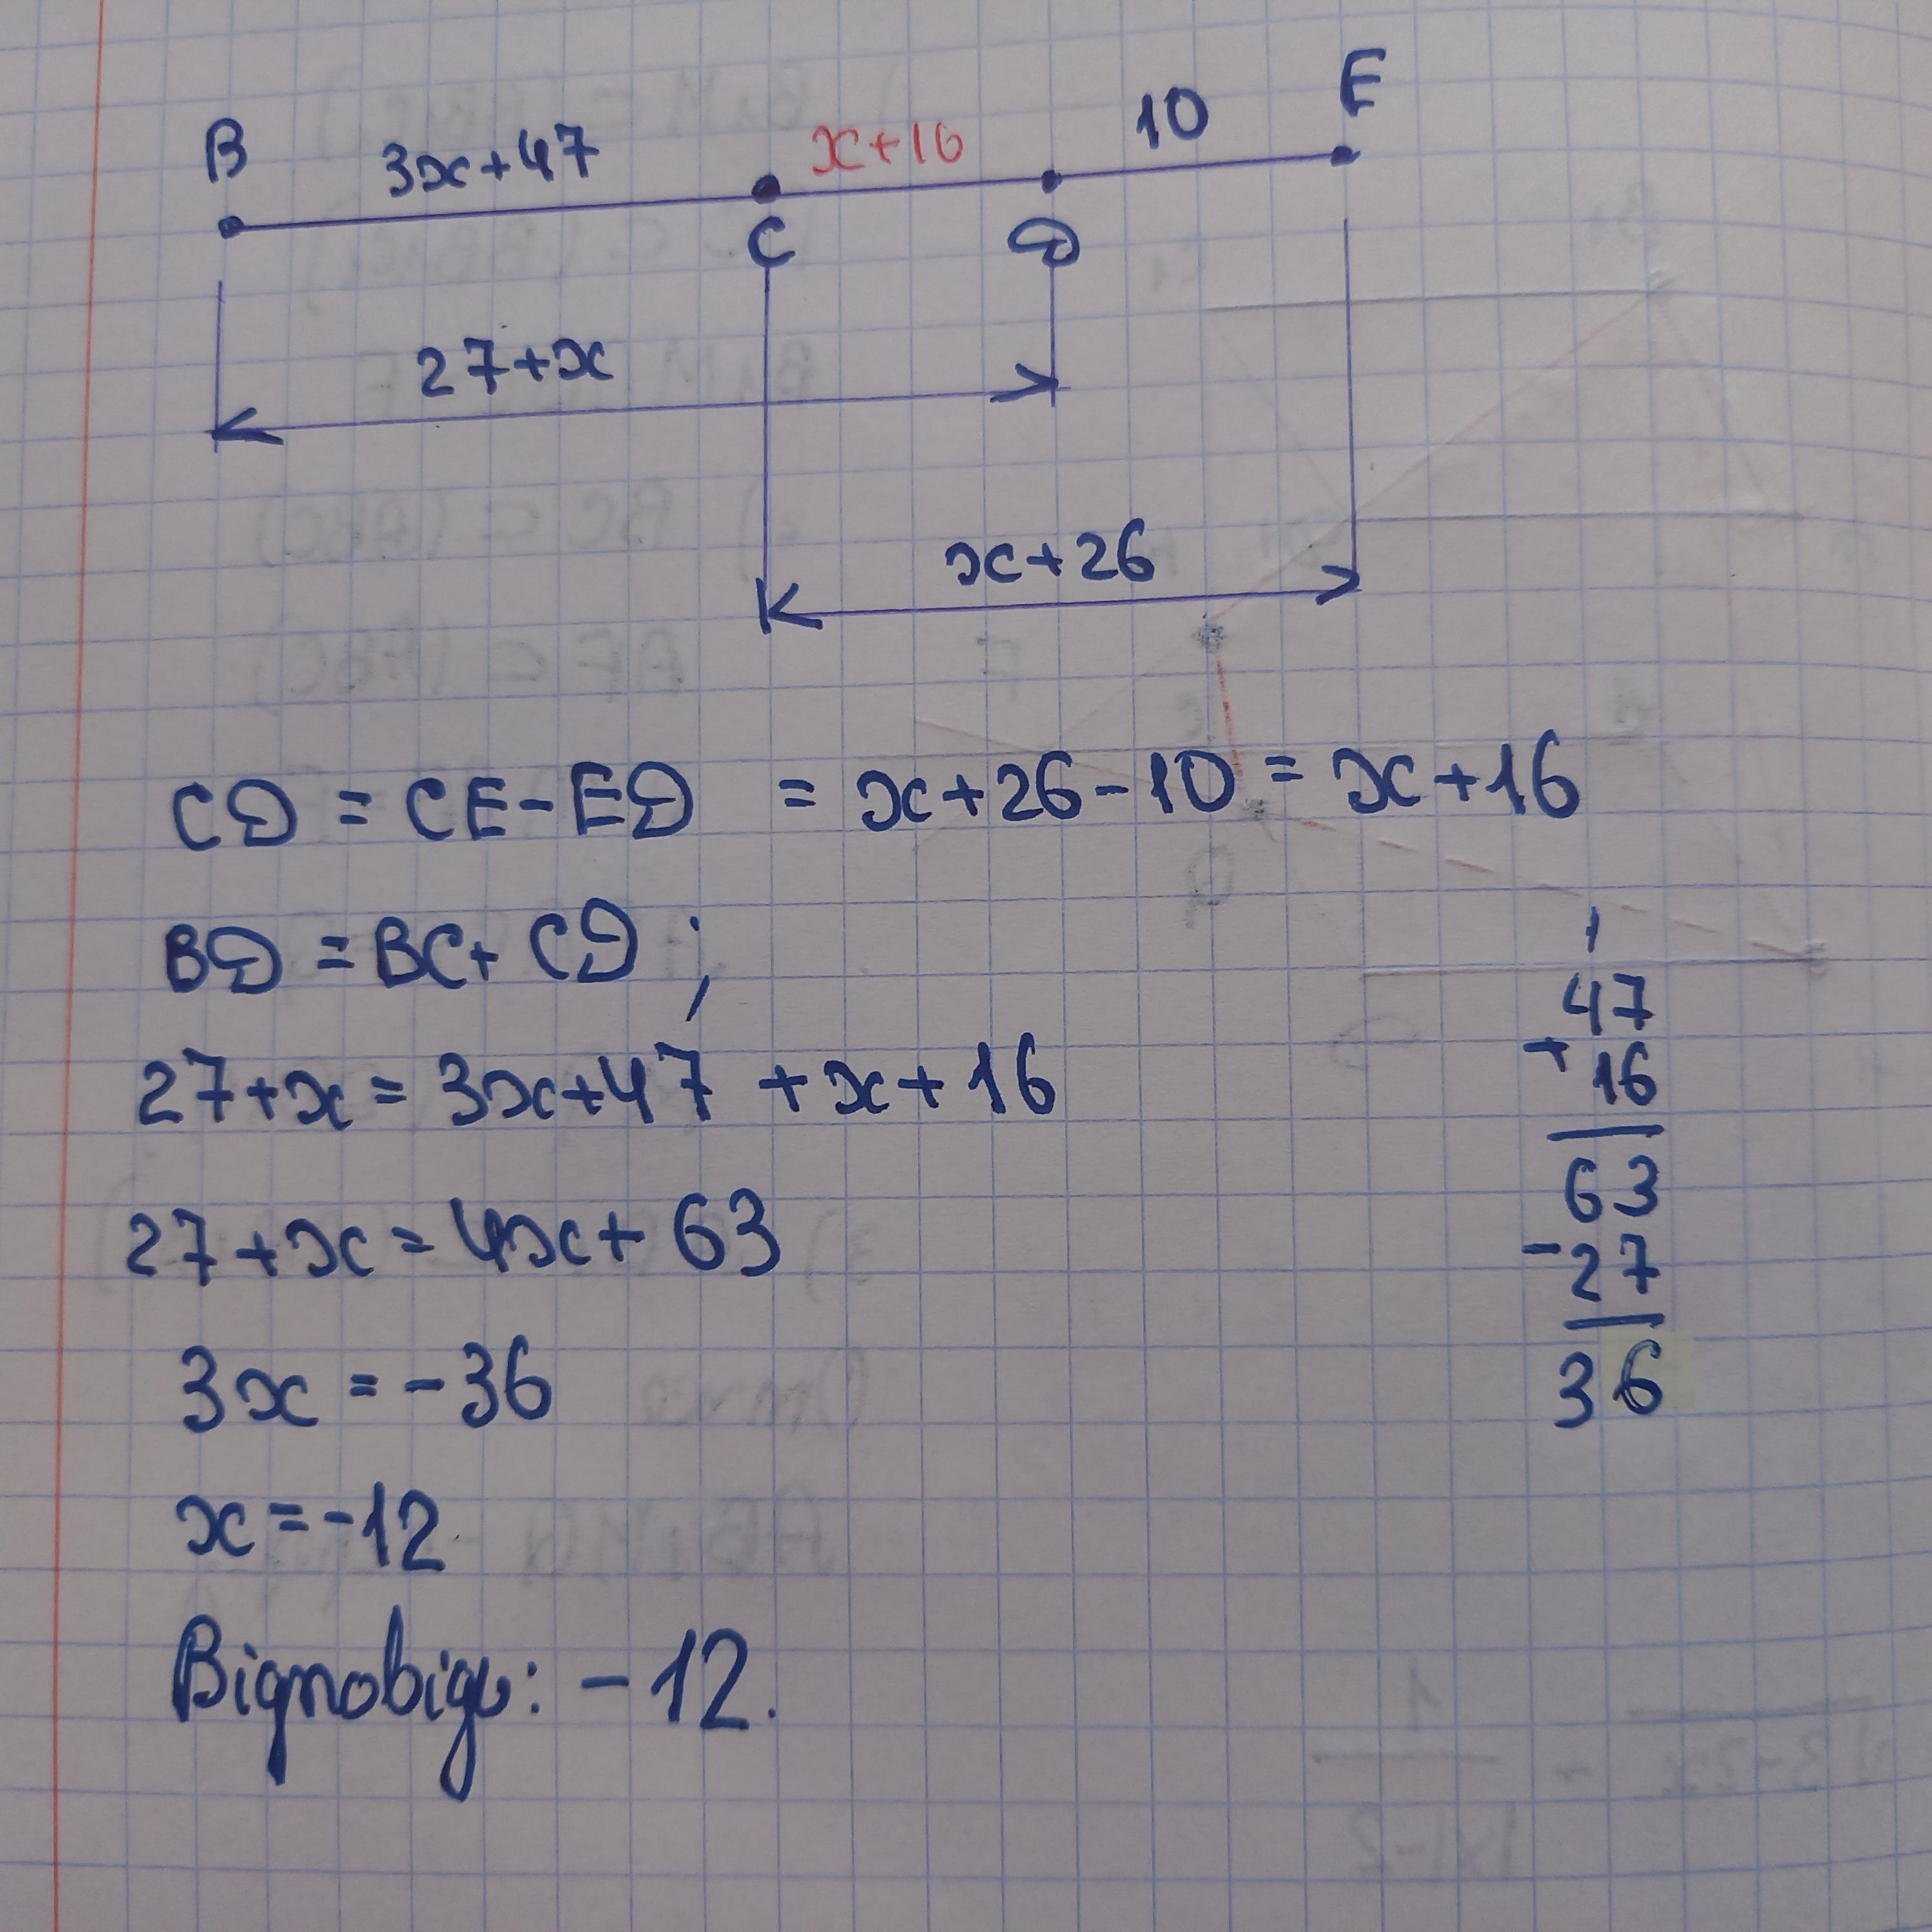 B 3x+47 x+16 10 E
C D
27+x
x+26
CD = CE-ED = x+26-10 = x+16
BD = BC+ CD ;
27+x = 3x+47 + x+16
27+x = 4x+ 63
3x = -36
x = -12
Відповідь: -12.
1
47
+ 16
63
- 27
36